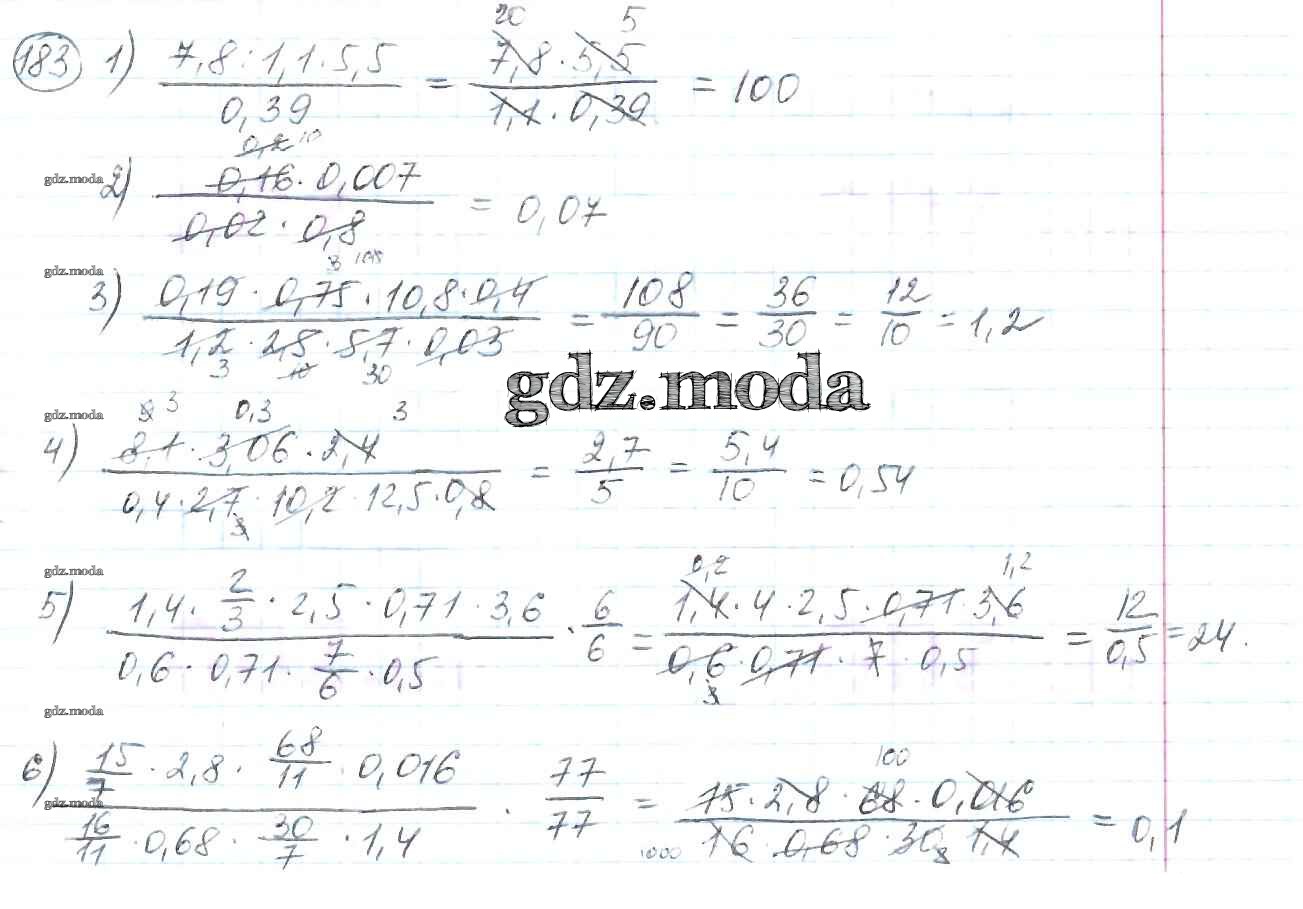 183 1) (7,8 : 1,1 · 5,5)/0,39 = (7,8 · 5,5)/(1,1 · 0,39) = 100
20 5
gdz.moda
2) (0,16 · 0,007)/(0,02 · 0,8) = 0,07
0,2 10
gdz.moda
3) (0,19 · 0,75 · 10,8 · 0,4)/(1,2 · 2,5 · 5,7 · 0,03) = 108/90 = 36/30 = 12/10 = 1,2
3 108
3 10 30
gdz.moda
gdz.moda
4) (8,1 · 3,06 · 2,4)/(0,4 · 2,7 · 10,2 · 12,5 · 0,8) = 2,7/5 = 5,4/10 = 0,54
3 0,3 3
3
gdz.moda
5) (1,4 · 2/3 · 2,5 · 0,71 · 3,6)/(0,6 · 0,71 · 7/6 · 0,5) · 6/6 = (1,4 · 4 · 2,5 · 0,71 · 3,6)/(0,6 · 0,71 · 7 · 0,5) = 12/0,5 = 24.
0,2 1,2
3
gdz.moda
6) (15/7 · 2,8 · 68/11 · 0,016)/(16/11 · 0,68 · 30/7 · 1,4) · 77/77 = (15 · 2,8 · 68 · 0,016)/(16 · 0,68 · 30 · 1,4) = 0,1
100
1000
gdz.moda